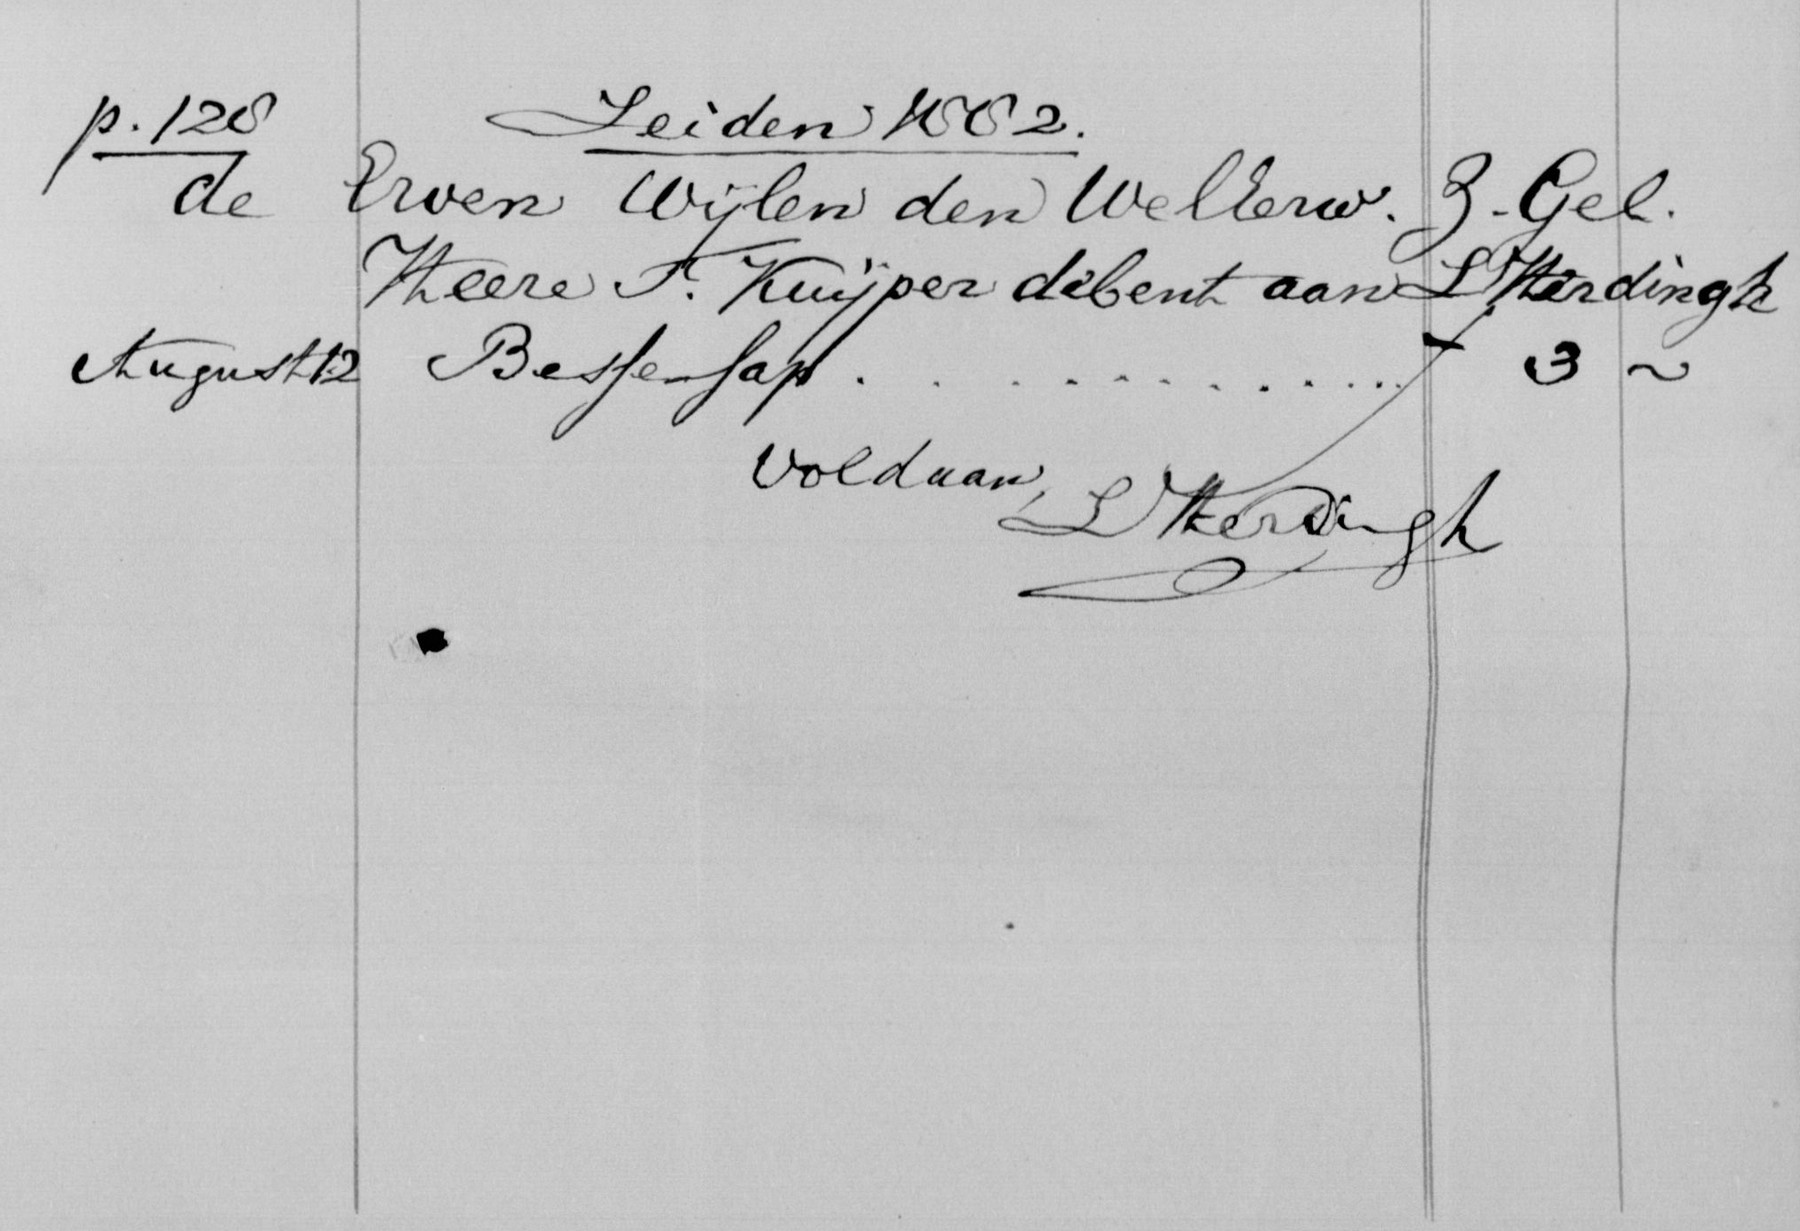 p. 128 Leiden 1882.
de Erven Wijlen den WelEerw. Z. Gel.
Heere F. Kuijper debent aan L Herdingh
August 12 Bessensap . . . . . . . . . . . . . f 3 ~
Voldaan,
L Herdingh